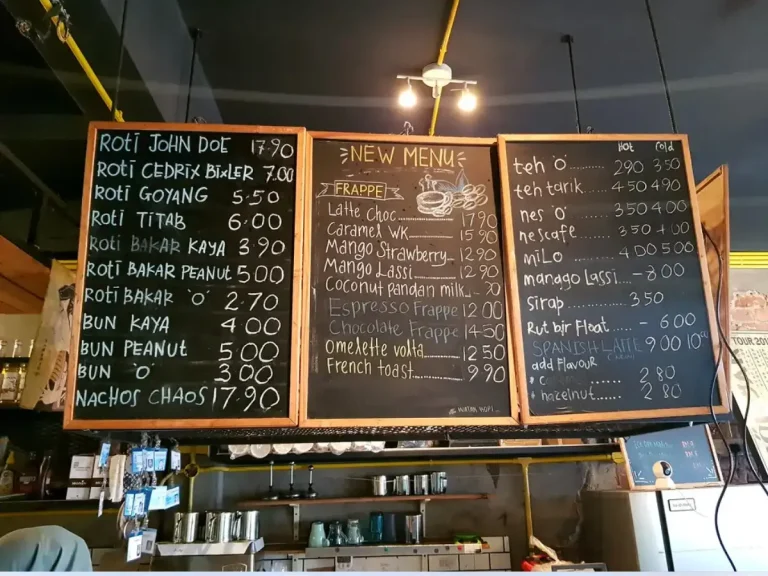 ROTI JOHN DOE 17.90
ROTI CEDRIX BIXLER 7.00
ROTI GOYANG 5.50
ROTI TITAB 6.00
ROTI BAKAR KAYA 3.90
ROTI BAKAR PEANUT 5.00
ROTI BAKAR 'O' 2.70
BUN KAYA 4.00
BUN PEANUT 5.00
BUN 'O' 3.00
NACHOS CHAOS 17.90
NEW MENU
FRAPPE
Latte choc 17.90
Caramel WK 15.90
Mango Strawberry 12.90
Mango Lassi 12.90
Coconut pandan milk
Espresso Frappe 12.00
Chocolate Frappe 14.50
omelette volta 12.50
French toast 9.90
HOT Cold
teh 'O' 290 350
teh tarik 450 490
nes 'O' 350 400
nescafe 350 400
miLo 400 500
manggo Lassi - 8.00
sirap 350
Rut bir Float - 6.00
SPANISH LATTE 9.00
add flavour
hazelnut 2.80
TOUR